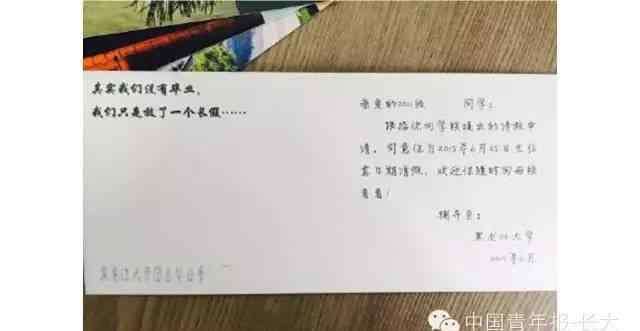 其实我们没有毕业，
我们只是放了一个长假……
亲爱的2011级 同学：
根据您向学校提出的请假申
请，同意你自2015年6月25日至任
意日期请假，欢迎你随时回母校
看看！
辅导员：
黑龙江大学
2015年6月
黑龙江大学团委毕业季
中国青年报-长大